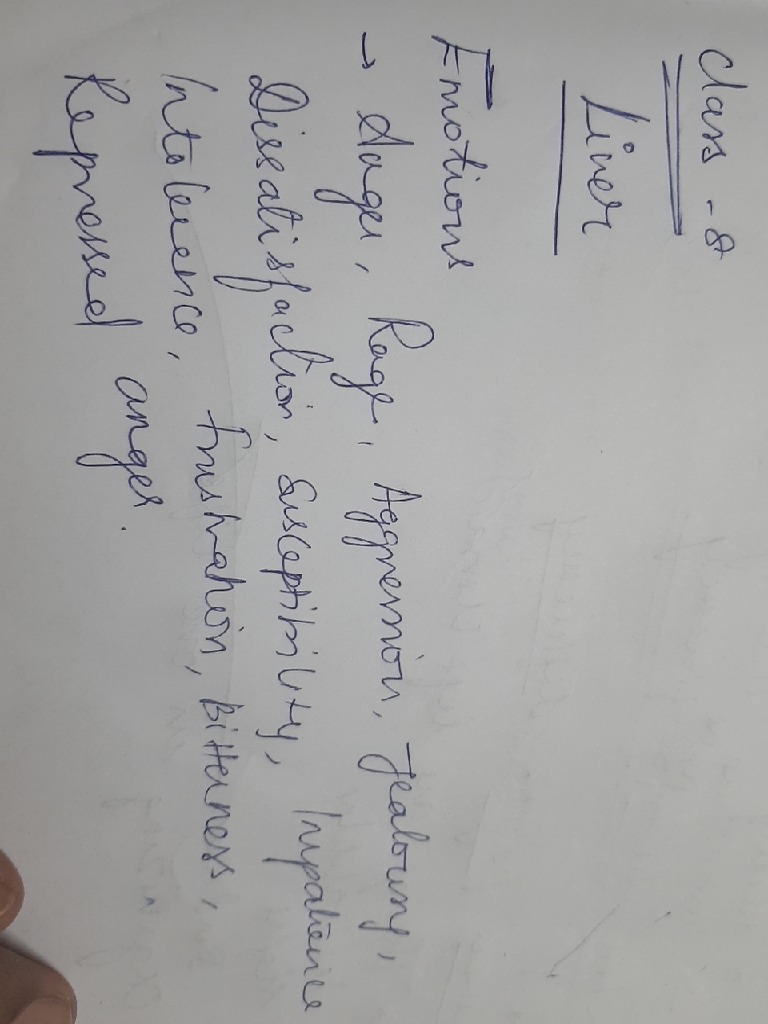 Class - 8
Liver
Emotions
→ Anger, Rage, Aggression, Jealousy,
Dissatisfaction, Susceptibility, Impatience
Intolerence, frustration, Bitterness,
Repressed anger.